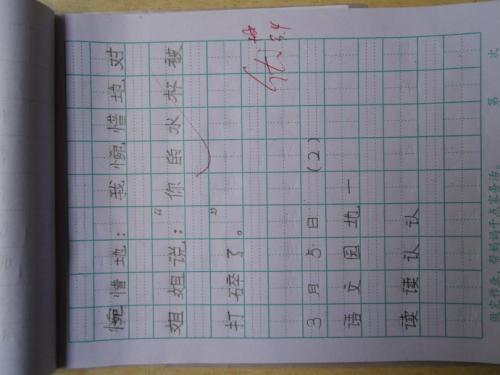 惋惜地：我惋惜地对
姐姐说：“你的水杯被
打碎了。”
3月5日（2）
语文园地一
读读认认
优 3.4
第 次